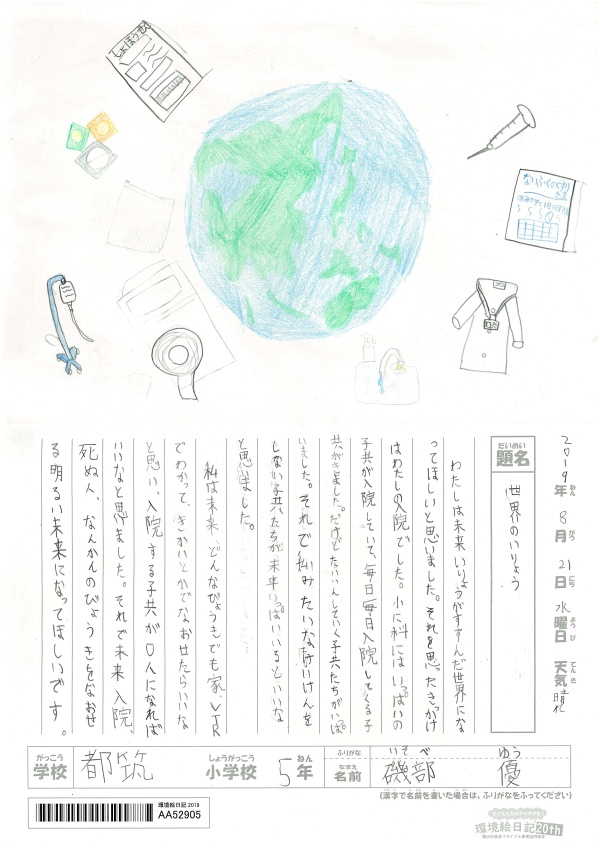 しょほう
ないふくやく
2019年 8月 21日 水曜日 天気 晴れ
ねん がつ にち ようび てんき
だいめい
題名
世界のいりょう
わたしは未来いりょうがすすんだ世界にな
ってほしいと思いました。それを思ったきっかけ
はわたしの入院でした。小に科にはいっぱいの
子共が入院していて、毎日毎日入院してくる子
共がきました。だけどたいいんしていく子共たちがいっぱ
いました。それで私みたいなけいけんを
しない子共たちが未来いっぱいいるといいな
と思いました。
私は未来どんなびょうきでも家やJR
でわかって、きかいとかでなおせたらいいな
と思い、入院する子共が0人になれば
いいなと思いました。それで未来入院、
死ぬ人、なんかんのびょうきをなおせ
る明るい未来になってほしいです。
がっこう
学校
都筑
しょうがっこう
小学校
5年
ねん
ふりがな
なまえ
名前
いそべ ゆう
磯部 優
(漢字で名前を書いた場合は、ふりがなをふってください)
環境絵日記2019
AA52905
環境絵日記20th